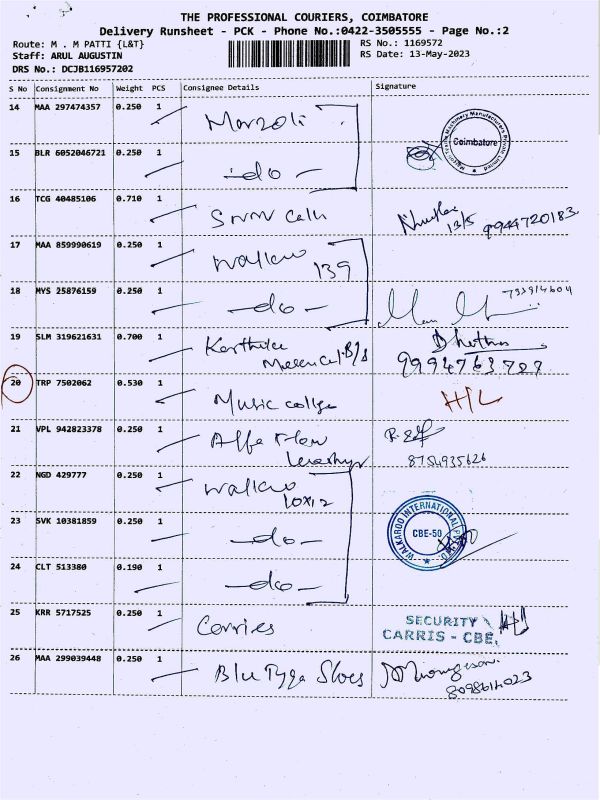 THE PROFESSIONAL COURIERS, COIMBATORE
Delivery Runsheet - PCK - Phone No.:0422-3505555 - Page No.:2
Route: M . M PATTI {L&T}
RS No.: 1169572
Staff: ARUL AUGUSTIN
RS Date: 13-May-2023
DRS No.: DCJB116957202
S No Consignment No Weight PCS Consignee Details Signature
14 MAA 297474357 0.250 1 Marzoli
Coimbatore
15 BLR 6052046721 0.250 1 -do-
16 TCG 40485106 0.710 1 13/5 9944720183
17 MAA 859990619 0.250 1 walkaroo 139
18 MVS 25876159 0.250 1 -do-
19 SLM 319621631 0.700 1 Karthika
9994763727
20 TRP 7502062 0.530 1 Music college H/L
21 VPL 942823378 0.250 1 Alfa Flow
8754935626
22 NGD 429777 0.250 1 walkaroo
10x12
WALKAROO INTERNATIONAL
CBE-50
23 SVK 10381859 0.250 1 -do-
24 CLT 513380 0.190 1 -do-
25 KRR 5717525 0.250 1 Carries
SECURITY
CARRIS - CBE.
26 MAA 299039448 0.250 1 Blu Tyga Shoes
8098614023